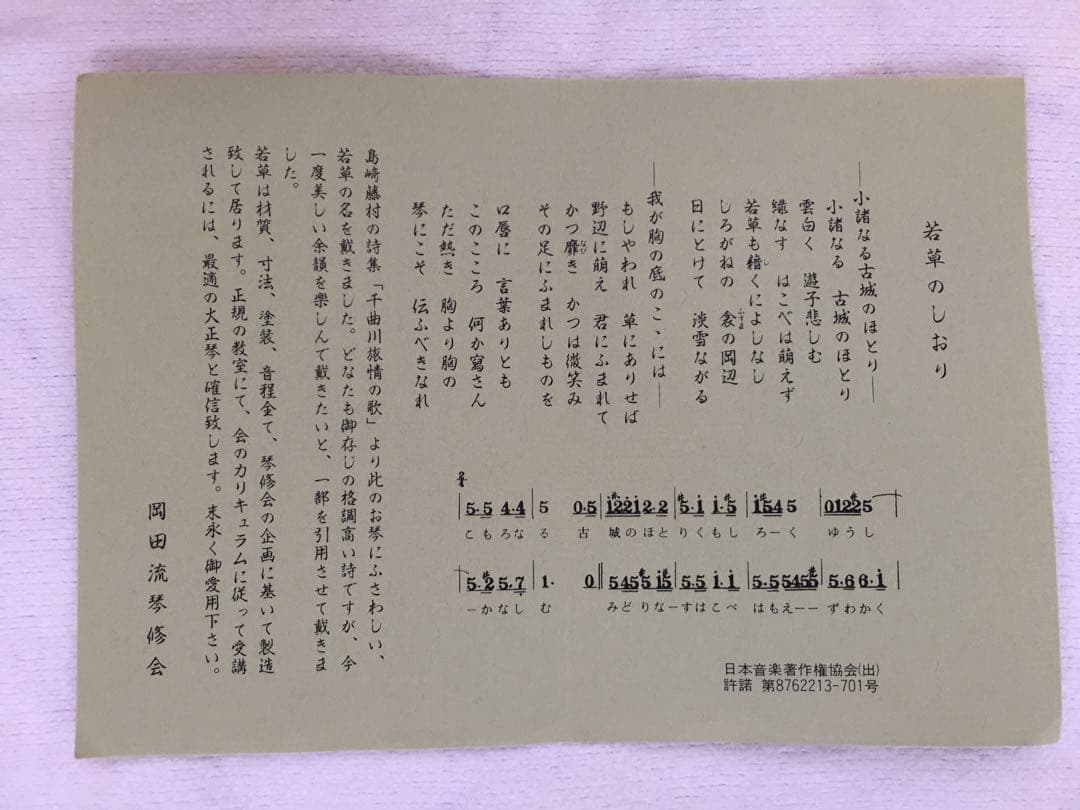 若草のしおり
―小諸なる古城のほとり―
小諸なる　古城のほとり
雲白く　遊子悲しむ
緑なす　はこべは萌えず
若草も藉くによしなし
し
しろがねの　衾の岡辺
ふすま
日にとけて　淡雪ながる
―我が胸の底のこゝには―
もしやわれ　草にありせば
野辺に萌え　君にふまれて
かつ靡き　かつは微笑み
なび
その足にふまれしものを
口唇に　言葉ありとも
このこころ　何か寫さん
ただ熱き　胸より胸の
琴にこそ　伝ふべきなれ
島崎藤村の詩集「千曲川旅情の歌」より此のお琴にふさわしい、
若草の名を戴きました。どなたも御存じの格調高い詩ですが、今
一度美しい余韻を楽しんで戴きたいと、一部を引用させて戴きま
した。
若草は材質、寸法、塗装、音程全て、琴修会の企画に基いて製造
致して居ります。正規の教室にて、会のカリキュラムに従って受講
されるには、最適の大正琴と確信致します。末永く御愛用下さい。
岡田流琴修会
こもろなる　古　城のほと　りくもし　ろーく　ゆうし
ーかなし　む　みどりなーすはこべ　はもえーー　ずわかく
日本音楽著作権協会(出)
許諾 第8762213-701号